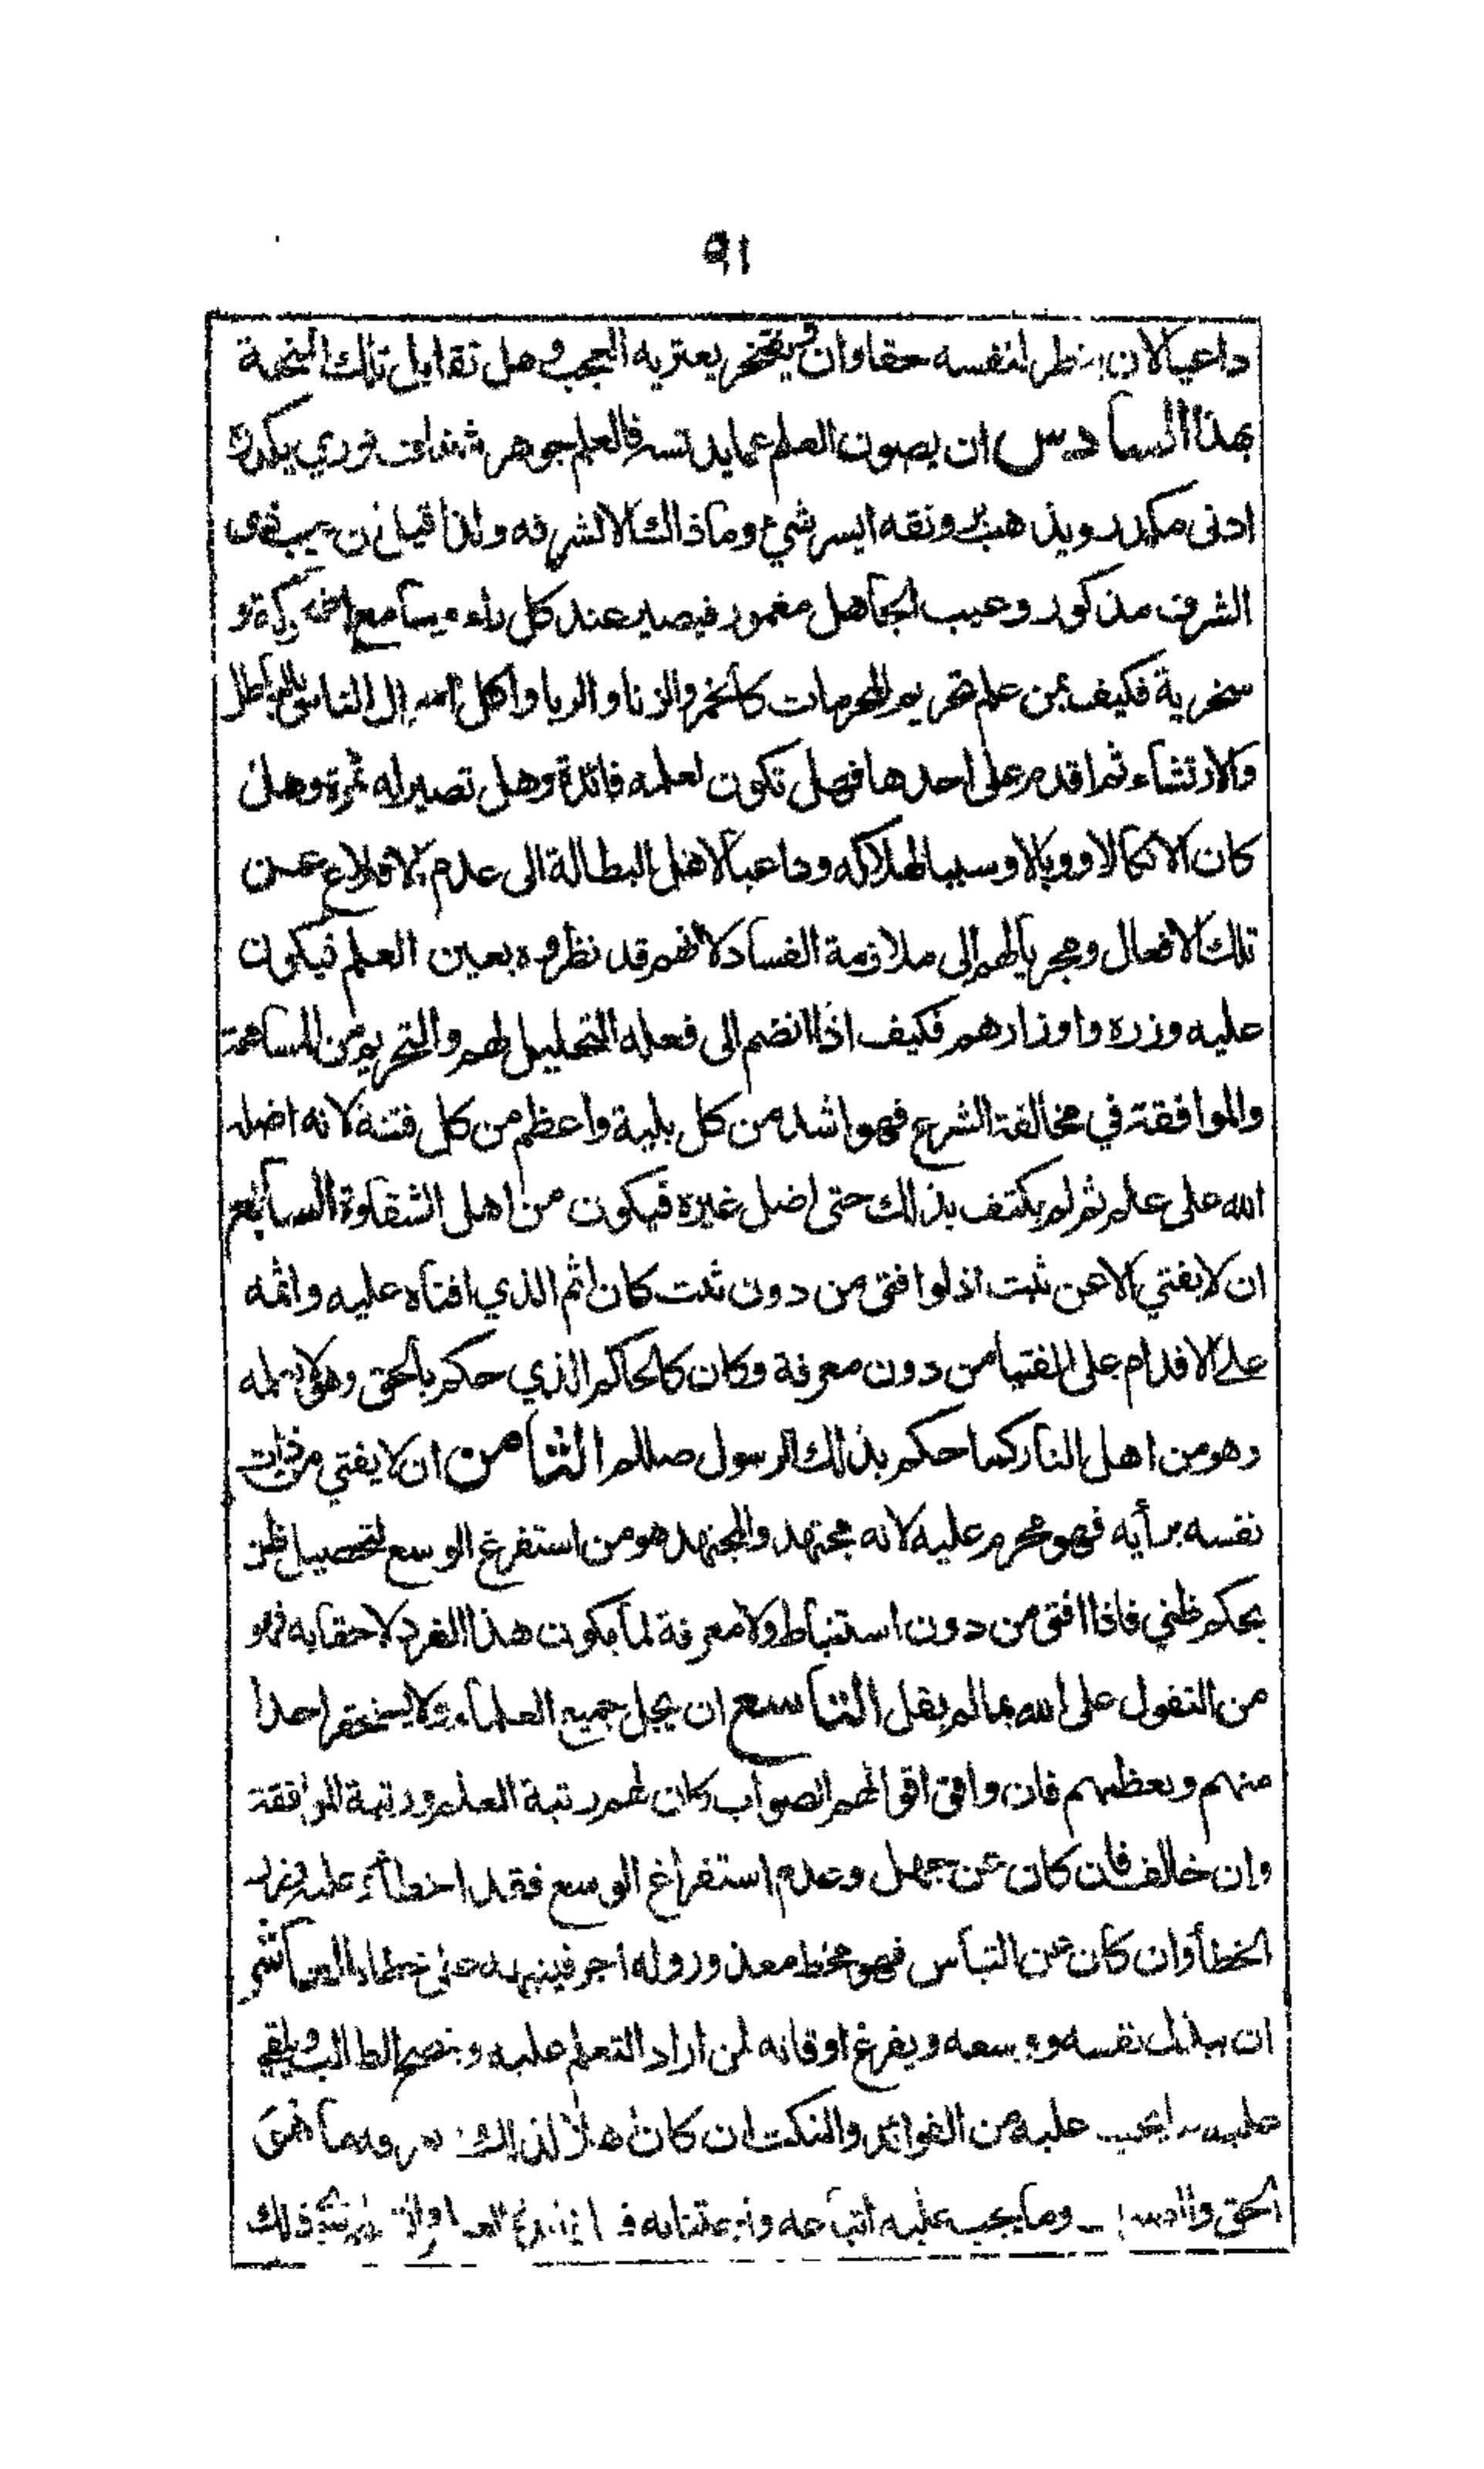 ٩١
داعيا لان ينظر لنفسه حقا وان يفتخر يعتريه العجب وهل تقابل تلك النعمة
بهذا السادس ان يصون العلم عما يدنسه فالعلم جوهر شفاف نوري يكدره
ادنى مكدر ويذهب رونقه ايسر شيء وما ذاك الا لشرفه ولذا قيل ان عيب ذوى
الشرف مذكور وعيب الجاهل مغمور فيصير عند كل راء وسامع اضحوكة و
سخرية فكيف بمن علم تحريم المحرمات كالخمر والزنا والربا واكل اموال الناس بالباطل
والارتشاء ثم اقدم على احدها فهل تكون لعلمه فائدة وهل تصير له ثمرة وهل
كان الا نكالا ووبالا وسببا لهلاكه وداعيا لاهل البطالة الى عدم الاقلاع عن
تلك الافعال ومجريا لهم الى ملازمة الفساد لانهم قد نظروه بعين العلم فيكون
عليه وزره واوزارهم فكيف اذا انضم الى فعله التحليل لهم والتحريم من المسامحة
والموافقة في مخالفة الشرع فهو اشد من كل بلية واعظم من كل فتنة لانه اضله
الله على علم ثم لم يكتف بذلك حتى اضل غيره فيكون من اهل الشقاوة السابع
ان لا يفتي الا عن ثبت اذ لو افتى من دون ثبت كان اثم الذي افتاه عليه واثمه
على الاقدام على الفتيا من دون معرفة وكان كالحاكم الذي حكم بالحق وهو لا يعلمه
وهو من اهل النار كما حكم بذلك الرسول صللم الثامن ان لا يفتي من ذات
نفسه برأيه فهو محرم عليه لانه مجتهد والمجتهد هو من استفرغ الوسع لتحصيل ظن
بحكم ظني فاذا افتى من دون استنباط ولا معرفة لما يكون هذا الفرد لاحقا به فهو
من التقول على الله بما لم يقل التاسع ان يجل جميع العلماء ولا يستحقر احدا
منهم ويعظمهم فان وافق اقوالهم الصواب كان لهم رتبة العلم ورتبة الموافقة
وان خالف فان كان عن جهل وعدم استفراغ الوسع فقد اخطأ وعليه وزر
الخطأ وان كان عن التباس فهو مخط معذور وله اجر فينبهه على خطاه العاشر
ان يبذل نفسه ووسعه ويفرغ اوقاته لمن اراد التعلم عليه وينصح الطالب ويلقي
عليه ما يجب عليه من الفوائد والنكت ان كان اهلا لذلك ما هو
الحق وما يجب عليه اتباعه واجتنابه ذلك